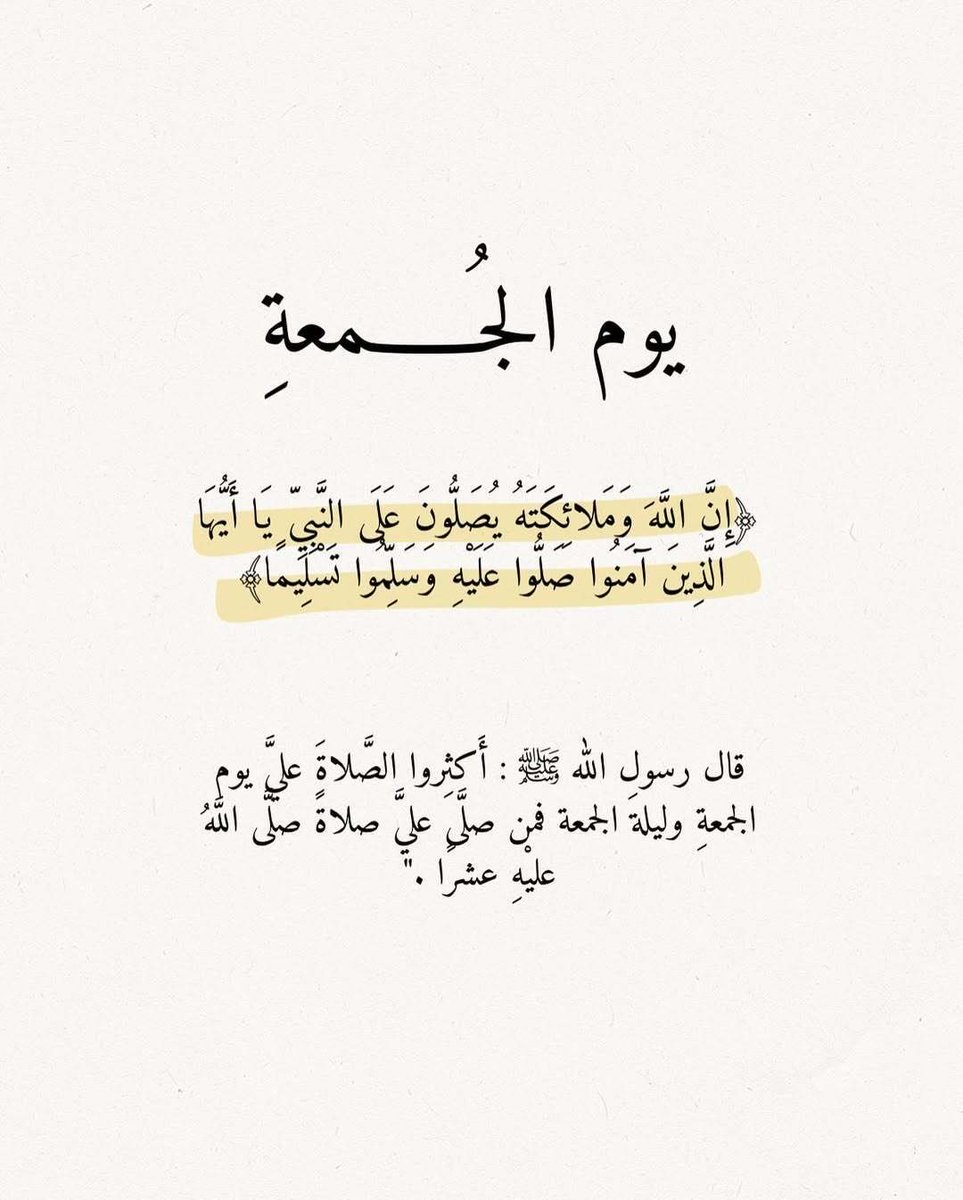 يوم الجُـــمعةِ
﴿إِنَّ اللَّهَ وَمَلَائِكَتَهُ يُصَلُّونَ عَلَى النَّبِيِّ يَا أَيُّهَا
الَّذِينَ آمَنُوا صَلُّوا عَلَيْهِ وَسَلِّمُوا تَسْلِيمًا﴾
قال رسولِ الله ﷺ : أَكثِروا الصَّلاةَ عليَّ يوم
الجمعةِ وليلة الجمعة فمَن صلَّى عليَّ صلاةً صلَّى اللَّهُ
عليْهِ عشرًا ."